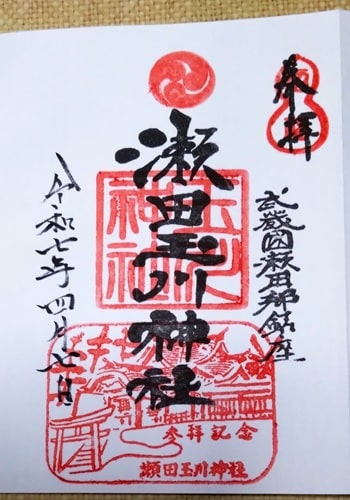 奉拝
武蔵国瀬田郷鎮座
瀬田玉川神社
令和七年四月七日
玉川
神社
参拝記念
瀬田玉川神社